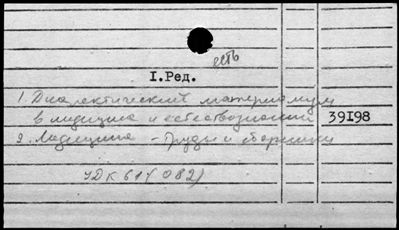 есть
I.Ред.
1. Диалектический материализм
в медицине и естествознании 39I98
2. Медицина - Труды и сборники
УДК 61(082)